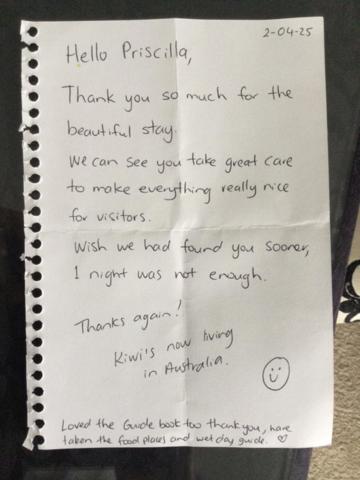 2-04-25
Hello Priscilla,
Thank you so much for the
beautiful stay.
We can see you take great care
to make everything really nice
for visitors.
Wish we had found you sooner,
1 night was not enough.
Thanks again!
Kiwi's now living
in Australia.
Loved the Guide book too thank you, have
taken the food places and wet day guide.